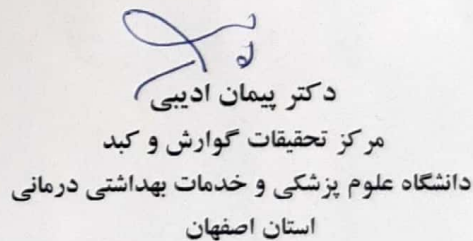 دکتر پیمان ادیبی
مرکز تحقیقات گوارش و کبد
دانشگاه علوم پزشکی و خدمات بهداشتی درمانی
استان اصفهان